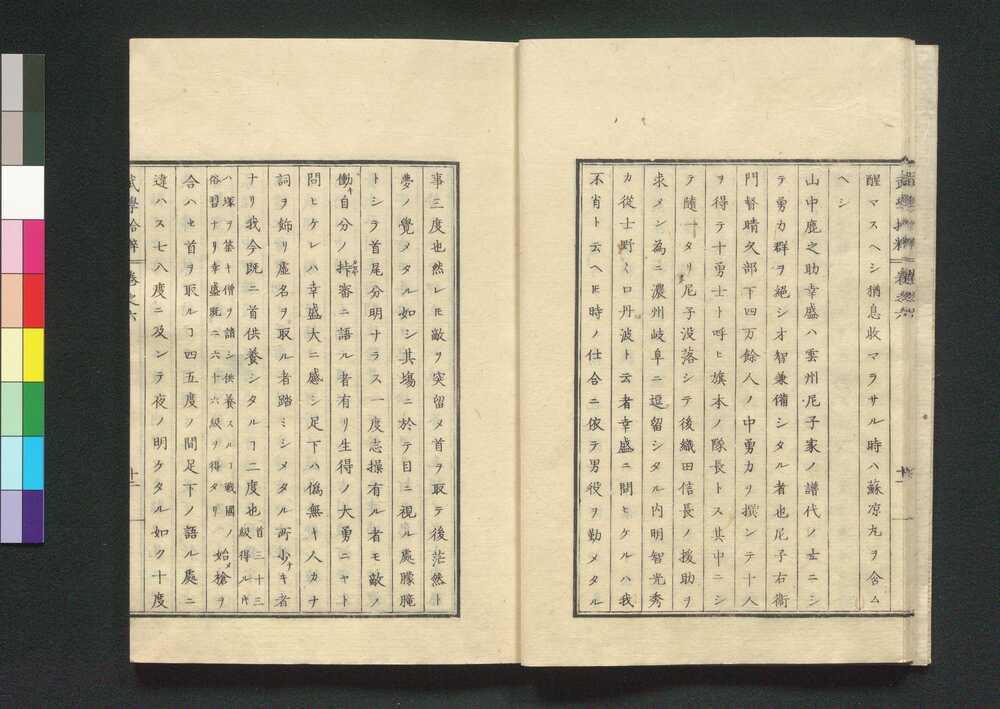 醒マスヘシ猶息收マラサル時ハ蘇凉丸ヲ含ム
ヘシ
山中鹿之助幸盛ハ雲州尼子家ノ譜代ノ士ニシ
テ勇力群ヲ絶シ才智兼備シタル者也尼子右衞
門督晴久部下四万餘人ノ中勇力ヲ撰ンテ十人
ヲ得テ十勇士ト呼ヒ旗本ノ隊長トス其中ニシ
テ隨一タリ尼子没落シテ後織田信長ノ援助ヲ
求メン為ニ濃州岐阜ニ逗留シタル内明智光秀
カ從士野々口丹波ト云者幸盛ニ問ヒケルハ我
不肖ト云ヘ𪜈時ノ仕合ニ依テ男役ヲ勤メタル
事三度也然レ𪜈敵ヲ突留メ首ヲ取テ後茫然ト
夢ノ覺メタル如シ其塲ニ於テ目ニ視ル處朦朧
トシテ首尾分明ナラス一度志操有ル者モ敵ノ
働キ自分ノ挊審ニ語ル者有リ生得ノ大勇ニヤト
問ヒケレハ幸盛大ニ感シ足下ハ僞無キ人カナ
詞ヲ飾リ虚名ヲ取ル者踏ミシメタル所少ナキ者
ナリ我今既ニ首供養シタルヿ二度也首三十三級得ル𪜈
ハ塚ヲ築キ僧ヲ請シ供養スルヿ戰國ノ俗習ナリ幸盛既ニ六十六級ヲ得タリ始メ槍ヲ
合ハセ首ヲ取ルヿ四五度ノ間足下ノ語ル處ニ
違ハス七八度ニ及ンテ夜ノ明ケタル如ク十度
武學拾粹 卷之六 十二